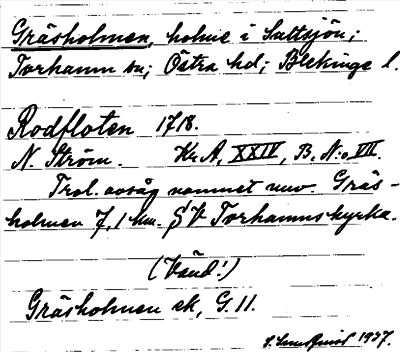 Gräsholmen, holme i Saltsjön;
Torhamn sn; Östra hd; Blekinge l.
Rodfloten 1718.
N. Ström. Kr. A, XXIV, B. N:o VII.
Trol. avsåg namnet nuv. Gräs-
holmen 7,1 km. S V Torhamns kyrka.
(Vänd!)
Gräsholmen ek, G. 11.
1937.